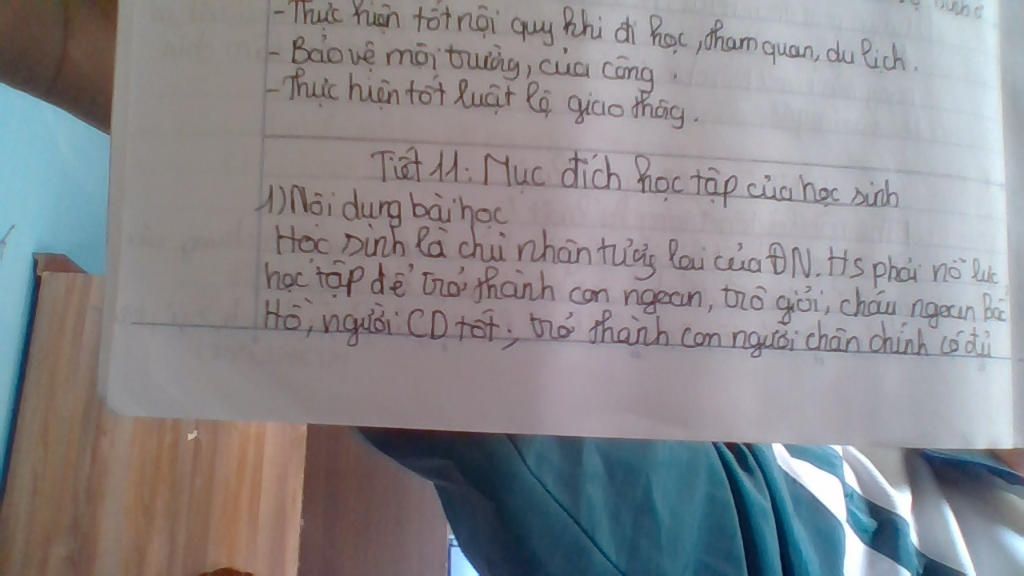 - Thực hiện tốt nội quy khi đi học, tham quan, du lịch.
- Bảo vệ môi trường, của công.
- Thực hiện tốt luật lệ giao thông.
Tiết 11: Mục đích học tập của học sinh
1) Nội dung bài học
Học sinh là chủ nhân tương lai của ĐN. HS phải nỗ lực
học tập để trở thành con ngoan, trò giỏi, cháu ngoan Bác
Hồ, người CD tốt; trở thành con người chân chính có đủ